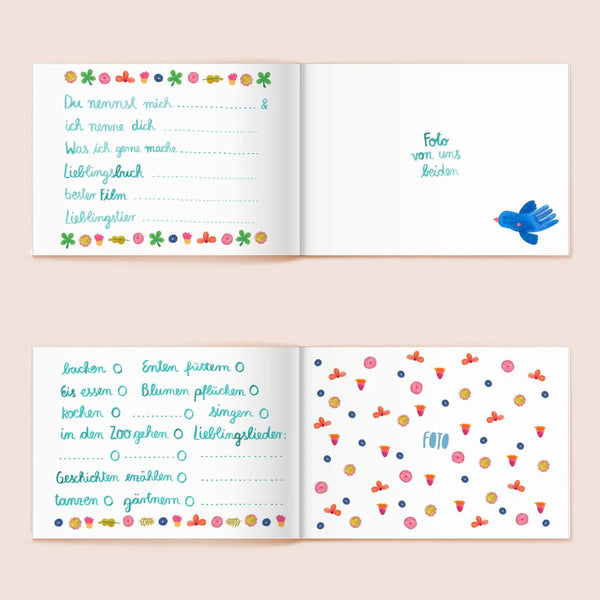 Du nennst mich ........................ &
ich nenne dich ........................
Was ich gerne mache ........................
Lieblingsbuch ........................
bester Film ........................
Lieblingstier ........................
Foto
von uns
beiden
backen O Enten füttern O
Eis essen O Blumen pflücken O
kochen O .................. O singen O
in den Zoo gehen O Lieblingslieder:
............ O ............ O ........................
Geschichten erzählen O ........................
tanzen O gärtnern O ........................
FOTO